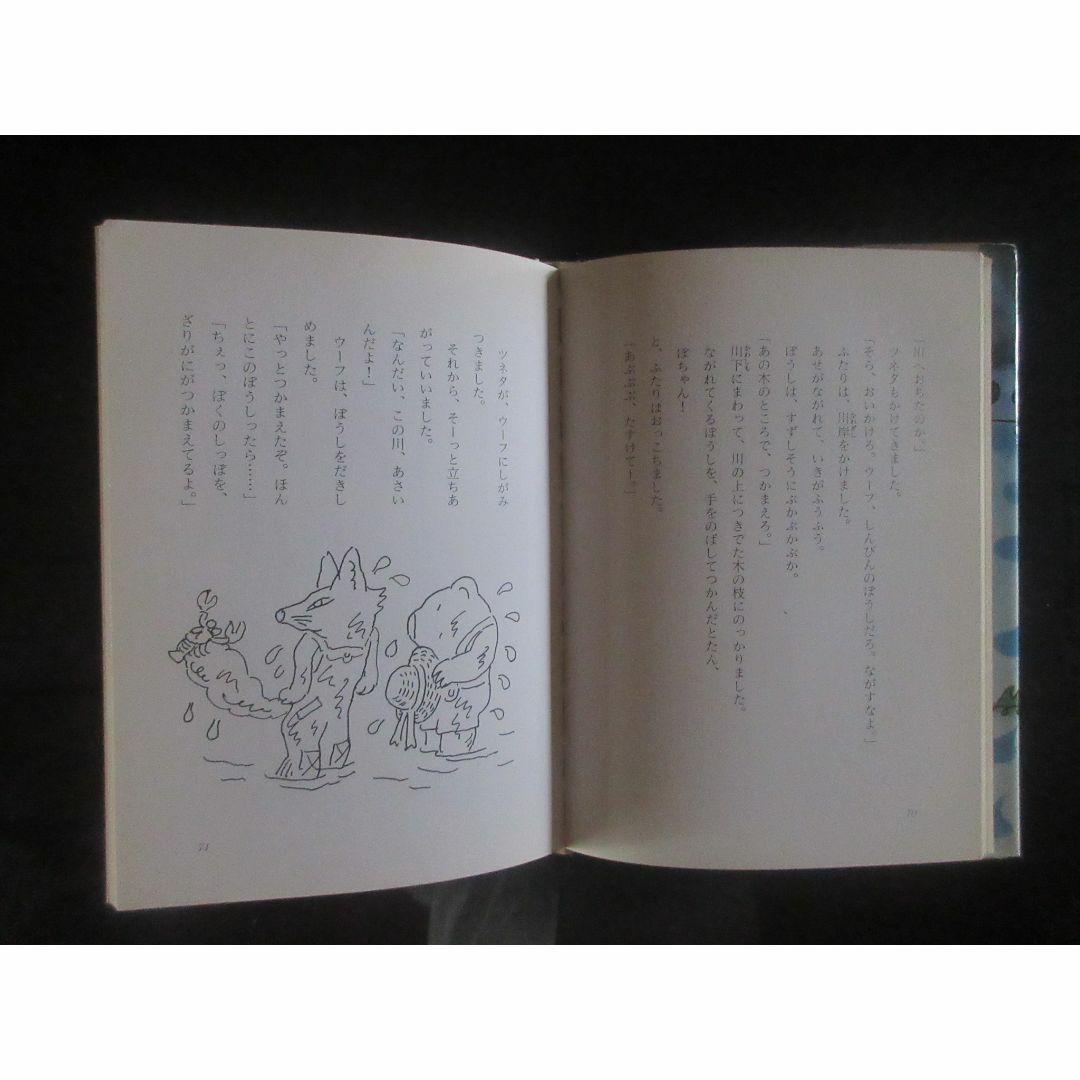 「川へおちたのか。」
ツネタもかけてきました。
「そら、おいかけろ。ウーフ、しんぴんのぼうしだろ。ながすなよ。」
ふたりは、川岸をかけました。
あせがながれて、いきがふうふう。
ぼうしは、すずしそうにぷかぷかぷか。
「あの木のところで、つかまえろ。」
川下にまわって、川の上につきでた木の枝にのっかりました。
ながれてくるぼうしを、手をのばしてつかんだとたん、
ぽちゃん！
と、ふたりはおっこちました。
「あぷぷぷ、たすけてー。」
70
ツネタが、ウーフにしがみ
つきました。
それから、そーっと立ちあ
がっていいました。
「なんだい、この川、あさい
んだよ！」
ウーフは、ぼうしをだきし
めました。
「やっとつかまえたぞ。ほん
とにこのぼうしったら……」
「ちぇっ、ぼくのしっぽを、
ざりがにがつかまえてるよ。」
71